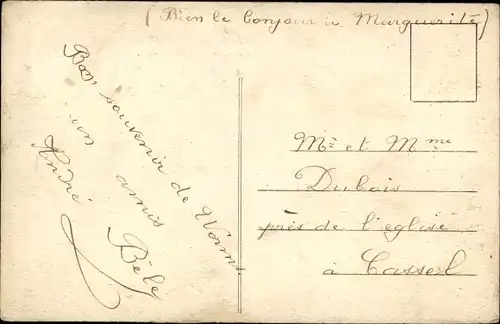 (Bien le Bonjour à Marguerite)
Bon souvenir de Worms
un amis
André Bèle
Mr et Mme
Dubois
près de l'eglise
à Cassel